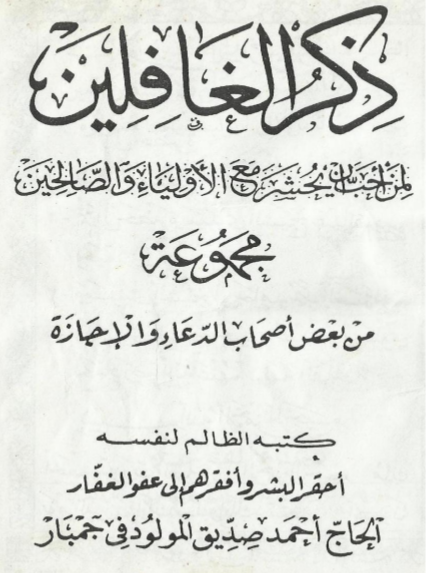 ذِكْرُ الْغَافِلِيْنَ
لِمَنْ اَحَبَّ اَنْ يُحْشَرَ مَعَ الْأَوْلِيَاءِ وَالصَّالِحِيْنَ
مَجْمُوْعَة
من بعض أصحاب الدّعاء وَالْإِجَازَة
كتبه الظالم لنفسه
أحقر البشر وأفقرهم إلى عفو الغفّار
اَلْحَاجّ أَحْمَد صِدِّيق اَلْمَوْلُوْد فِيْ جَمْبَارْ